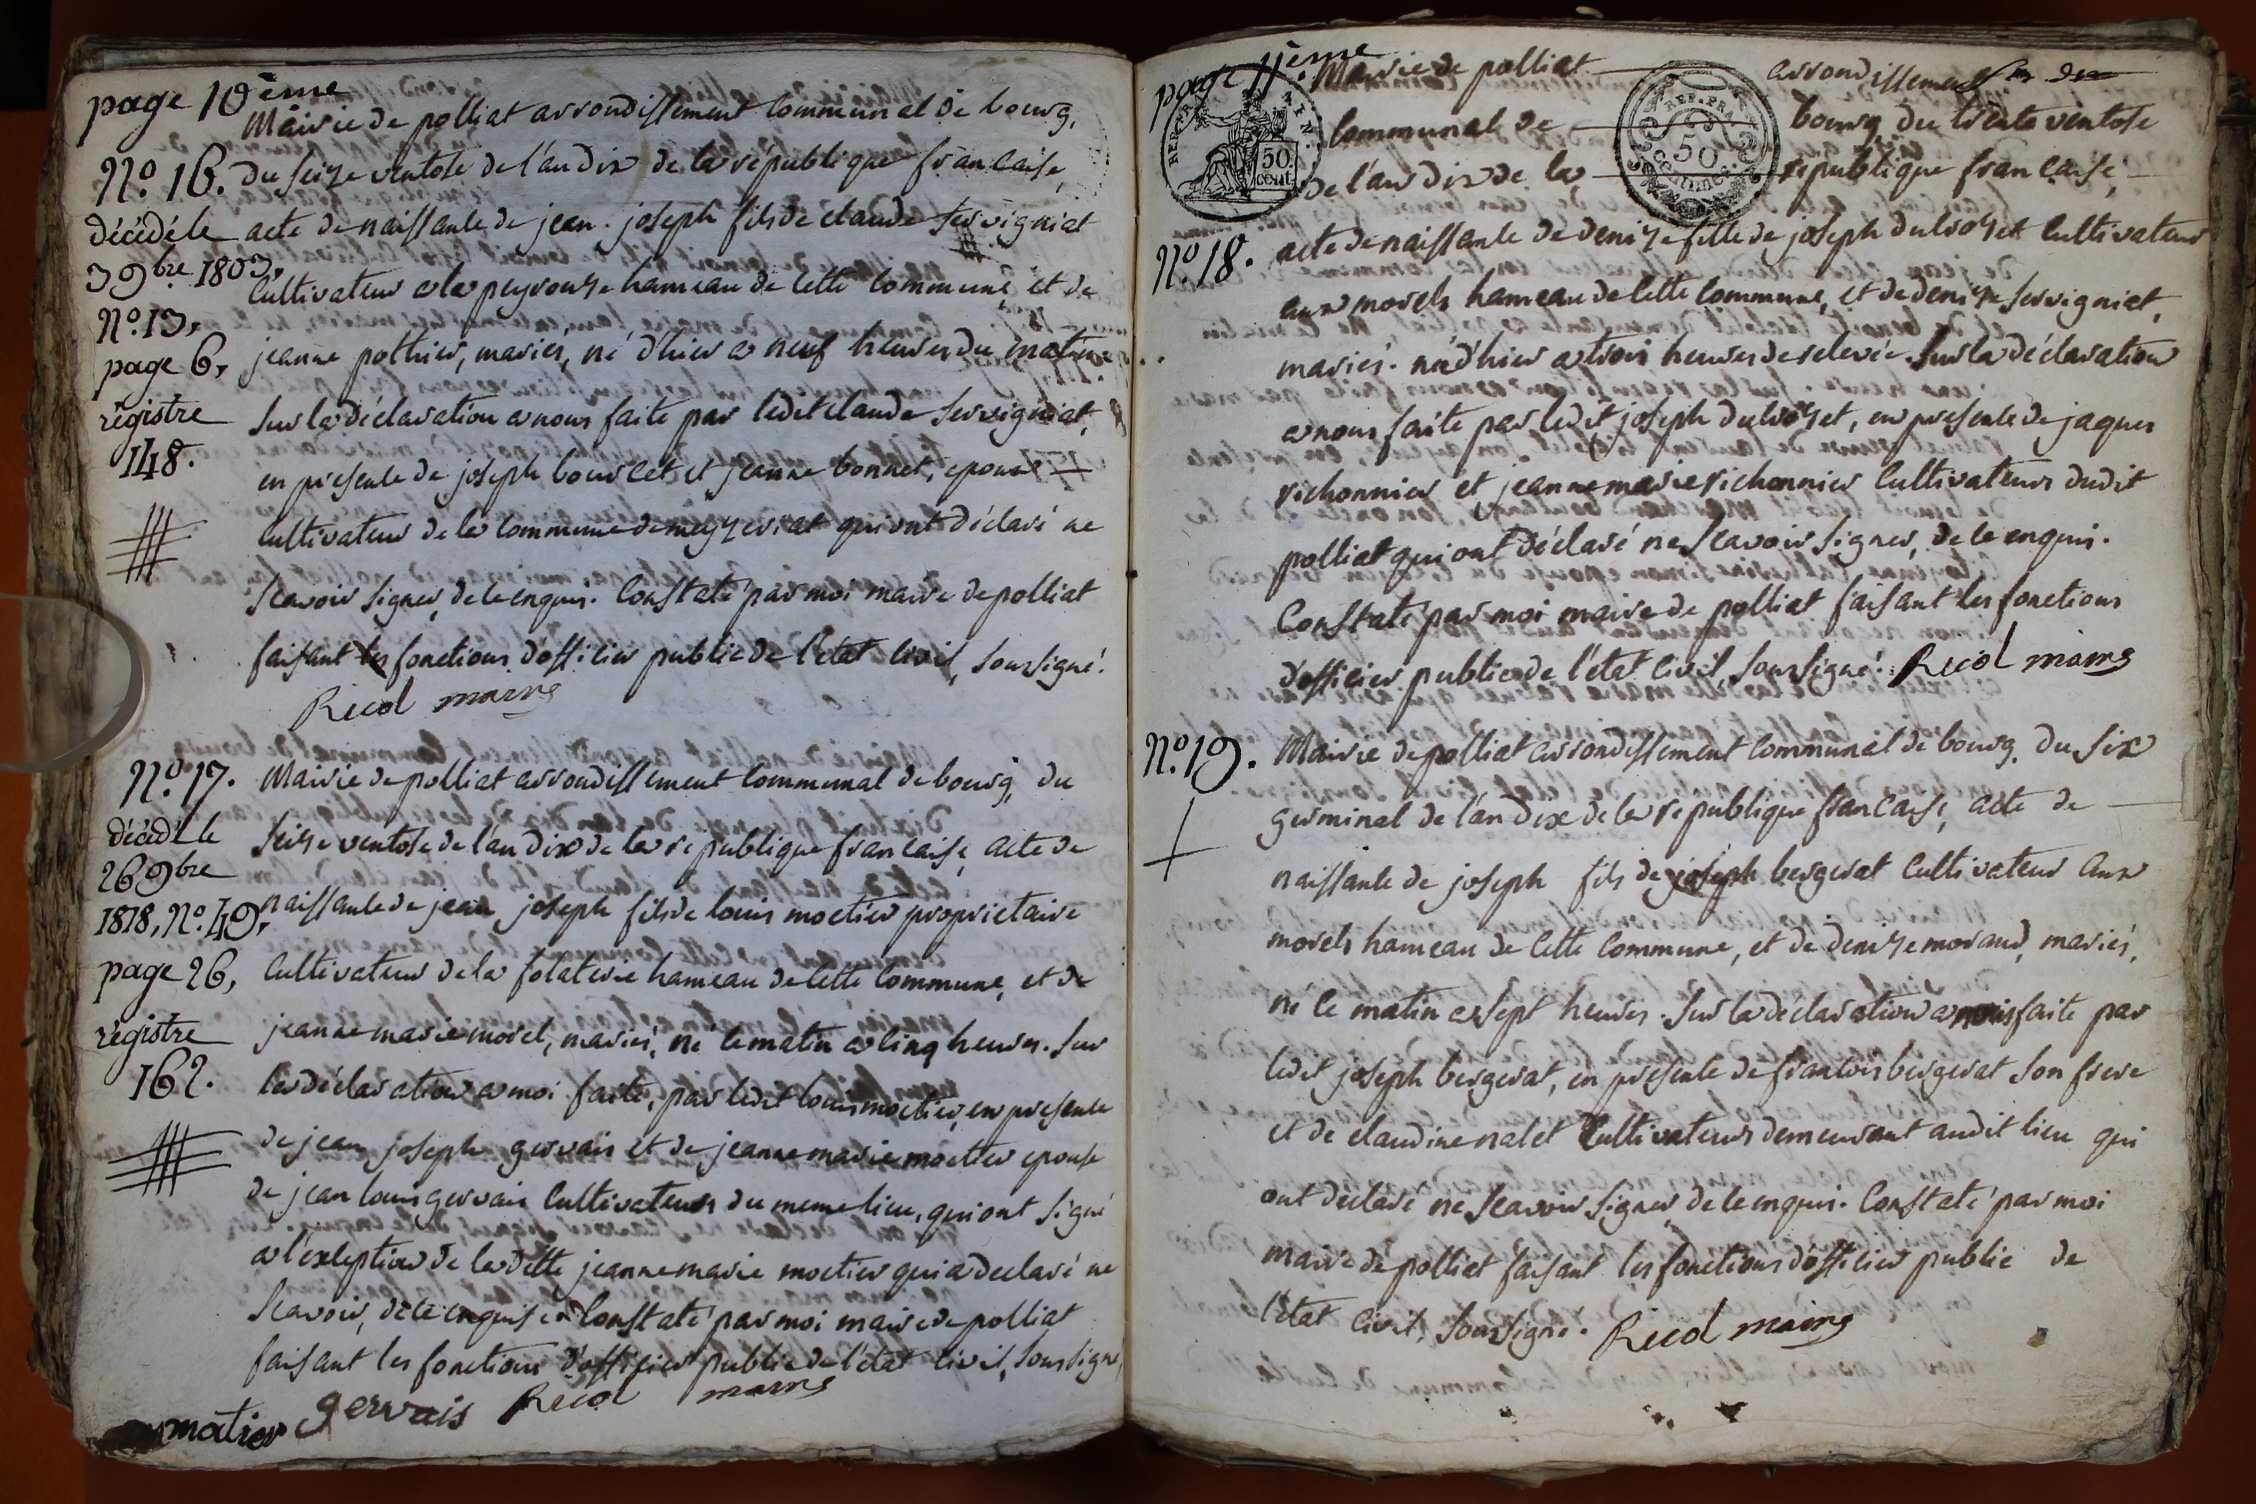 page 10ème
Mairie de polliat arrondissement communal de bourg,
N.º 16. du seize ventose de l'an dix de la république française,
décédé le acte de naissance de jean joseph fils de claude servigniat
3 9bre 1803,
cultivateur a la peyrouze hameau de cette commune, et de
N.º 13,
page 6, jeanne pothier, mariés, né d'hier a neuf heures du matin
régistre sur la déclaration a nous faite par ledit claude servigniat,
148. en presence de joseph bourcet et jeanne bonnet, epouse
cultivateur de la commune de mezeriat qui ont déclaré ne
scavoir signer, de ce enquis. Constaté par moi maire de polliat
faisant les fonctions d'officier public de l'état civil, soussigné.
Recol maire
N.º 17. Mairie de polliat arrondissement communal de bourg, du
décédé le seize ventose de l'an dix de la république française, acte de
26 9bre
1818, N.º 49, naissance de jean joseph fils de louis moctier proprietaire
page 26, cultivateur de la folaterie hameau de cette commune, et de
régistre jeanne marie morel, mariés, né ce matin a cinq heures. sur
162. la déclaration a moi faite, par ledit louis moctier, en presence
de jean joseph gervais et de jeanne marie moctier epouse
de jean louis gervais cultivateurs du meme lieu, qui ont signé
a l'exception de la ditte jeanne marie moctier qui a declaré ne
scavoir, de ce enquise. Constaté par moi maire de polliat
faisant les fonctions d'officier public de l'état civil, soussigné,
motier gervais Recol maire
page 11ème
Mairie de polliat arrondissement
communal de bourg, du trente ventose
de l'an dix de la république française,
REP. FRA.
50 cent.
REP. FRA.
50 centimes
N.º 18. acte de naissance de denize fille de joseph dubrozet cultivateur
aux morels hameau de cette commune, et de denize servigniat,
mariés. née d'hier a trois heures de relevée. sur la déclaration
a nous faite par ledit joseph dubrozet, en presence de jaques
richonnier et jeanne marie richonnier cultivateurs dudit
polliat qui ont déclaré ne scavoir signer, de ce enquis.
Constaté par moi maire de polliat faisant les fonctions
d'officier public de l'état civil, soussigné. Recol maire
N.º 19. Mairie de polliat arrondissement communal de bourg. du six
germinal de l'an dix de la republique française, acte de
naissance de joseph fils de joseph bergerat cultivateur aux
morels hameau de cette commune, et de denize morand, mariés,
né ce matin a sept heures. sur la déclaration a nous faite par
ledit joseph bergerat, en presence de francois bergerat son frere
et de claudine nalet cultivateurs demeurant audit lieu qui
ont declaré ne scavoir signer, de ce enquis. Constaté par moi
maire de polliat faisant les fonctions d'officier public de
l'état civil, soussigné. Recol maire